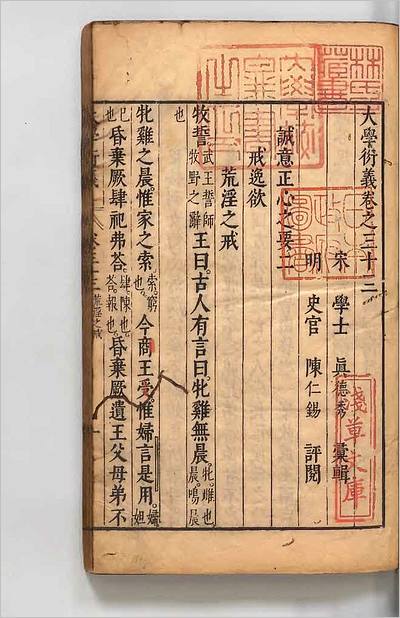 大學衍義卷之三十二
宋 學士 眞德秀 彙輯
明 史官 陳仁錫 評閱
誠意正心之要二
戒逸欲
荒淫之戒
牧誓。武王誓師牧野之辭王曰。古人有言曰。牝雞無晨牝。雌也。晨。鳴晨
也
牝雞之晨。惟家之索索。窮也。今商王受。惟婦言是用。婦。妲
己也昏棄厥肆祀弗荅。肆。陳也。荅。報也。昏棄厥遺王父母弟不
荒淫之戒
林氏藏書
日本政府圖書
淺草文庫